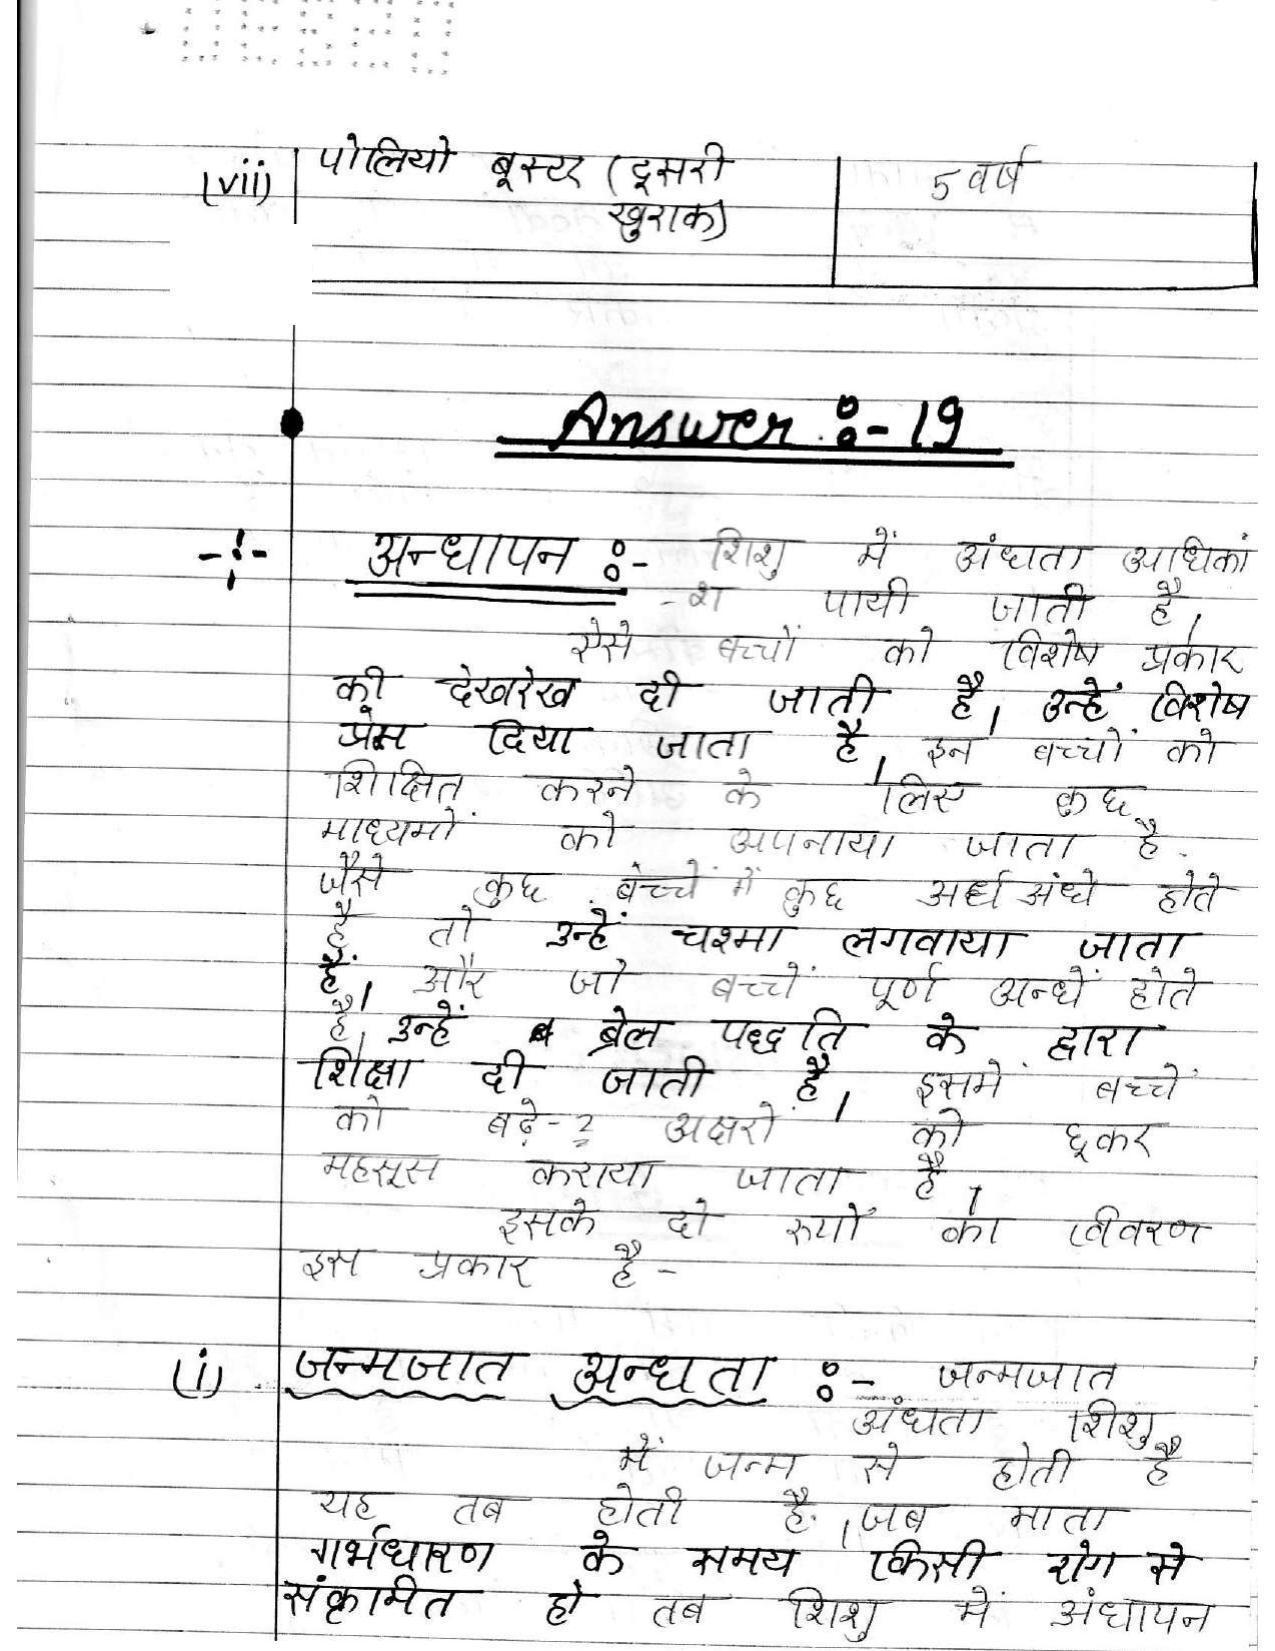 (vii) पोलियो बूस्टर (दूसरी 5 वर्ष
खुराक)
Answer :- 19
अन्धापन :- शिशु में अंधता अधिकां
-श पायी जाती है,
ऐसे बच्चों को विशेष प्रकार
की देखरेख दी जाती है, उन्हें विशेष
प्रेम दिया जाता है, इन बच्चों को
शिक्षित करने के लिए कुछ
माध्यमों को अपनाया जाता है.
जैसे कुछ बच्चें में कुछ अर्ध अंधे होते
है तो उन्हें चश्मा लगवाया जाता
हैं, और जो बच्चें पूर्ण अन्धें होते
है, उन्हें ब्रेल पद्धति के द्वारा
शिक्षा दी जाती है, इसमें बच्चें
को बढ़े-२ अक्षरों को छूकर
महसूस कराया जाता है,
इसके दो रुपों का विवरण
इस प्रकार है -
(i) जन्मजात अन्धता :- जन्मजात
अंधता शिशु
में जन्म से होती है
यह तब होती है, जब माता
गर्भधारण के समय किसी रोग से
संक्रामित हो तब शिशु में अंधापन